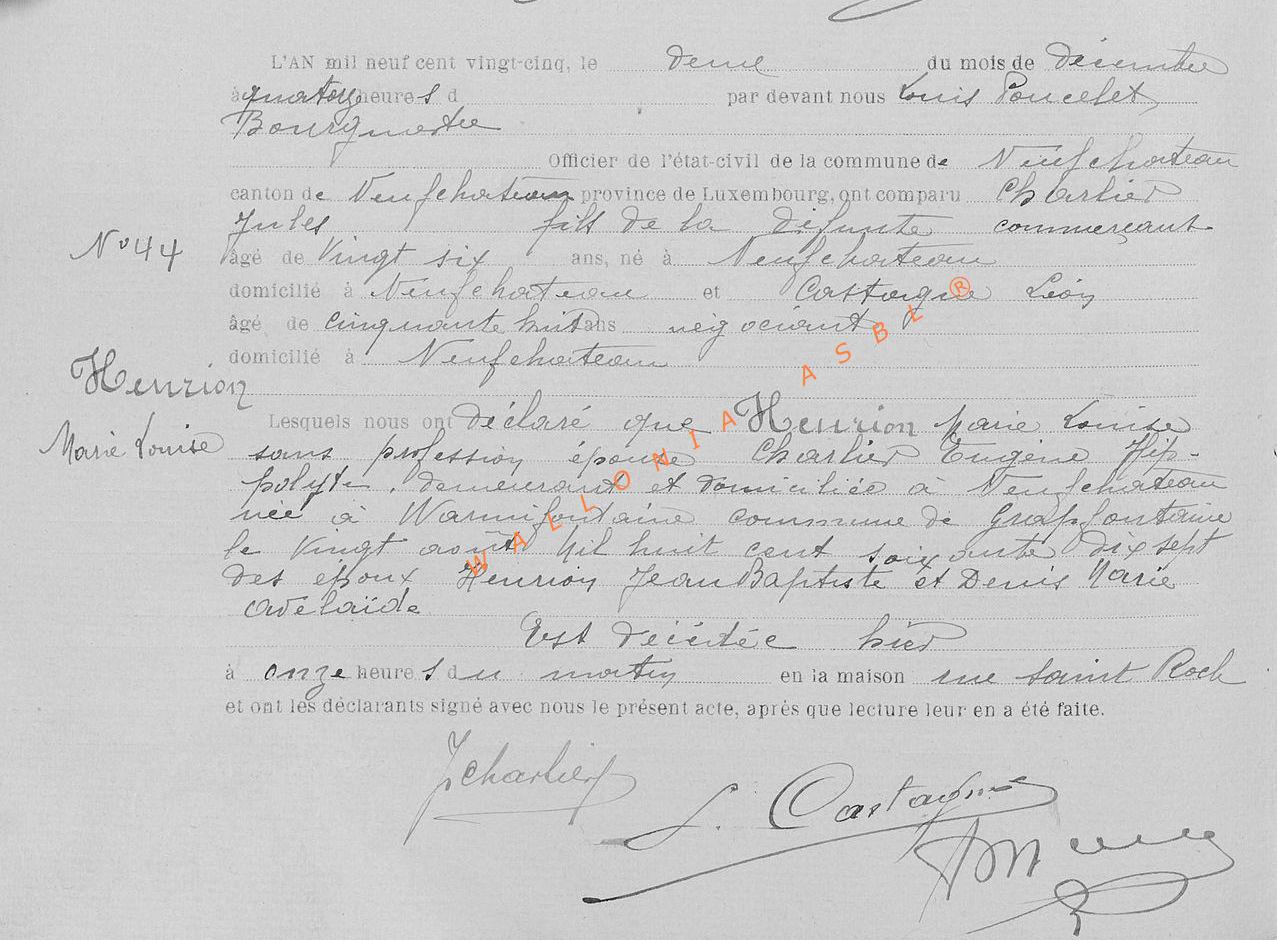 L'AN mil neuf cent vingt-cinq, le deux du mois de décembre
à quatorze heures d par devant nous Louis Poncelet
Bourgmestre
Officier de l'état-civil de la commune de Neufchateau
canton de Neufchateau province de Luxembourg, ont comparu Charlier
Jules fils de la défunte commerçant
N° 44
âgé de Vingt six ans, né à Neufchateau
domicilié à Neufchateau et Castagne Léon
âgé de cinquante huit ans négociant
domicilié à Neufchateau
Henrion
Marie Louise
Lesquels nous ont déclaré que Henrion Marie Louise
sans profession épouse Charlier Eugène Hip-
polyte. demeurant et domiciliée à Neufchateau
née à Warmifontaine commune de Grapfontaine
le Vingt août Mil huit cent soixante dix sept
des époux Henrion Jean Baptiste et Denis Marie
Adélaïde
Est décédée hier
à onze heures du matin en la maison rue saint Roch
et ont les déclarants signé avec nous le présent acte, après que lecture leur en a été faite.
J Charlier
L. Castagne
WALLONIA ASBL ®